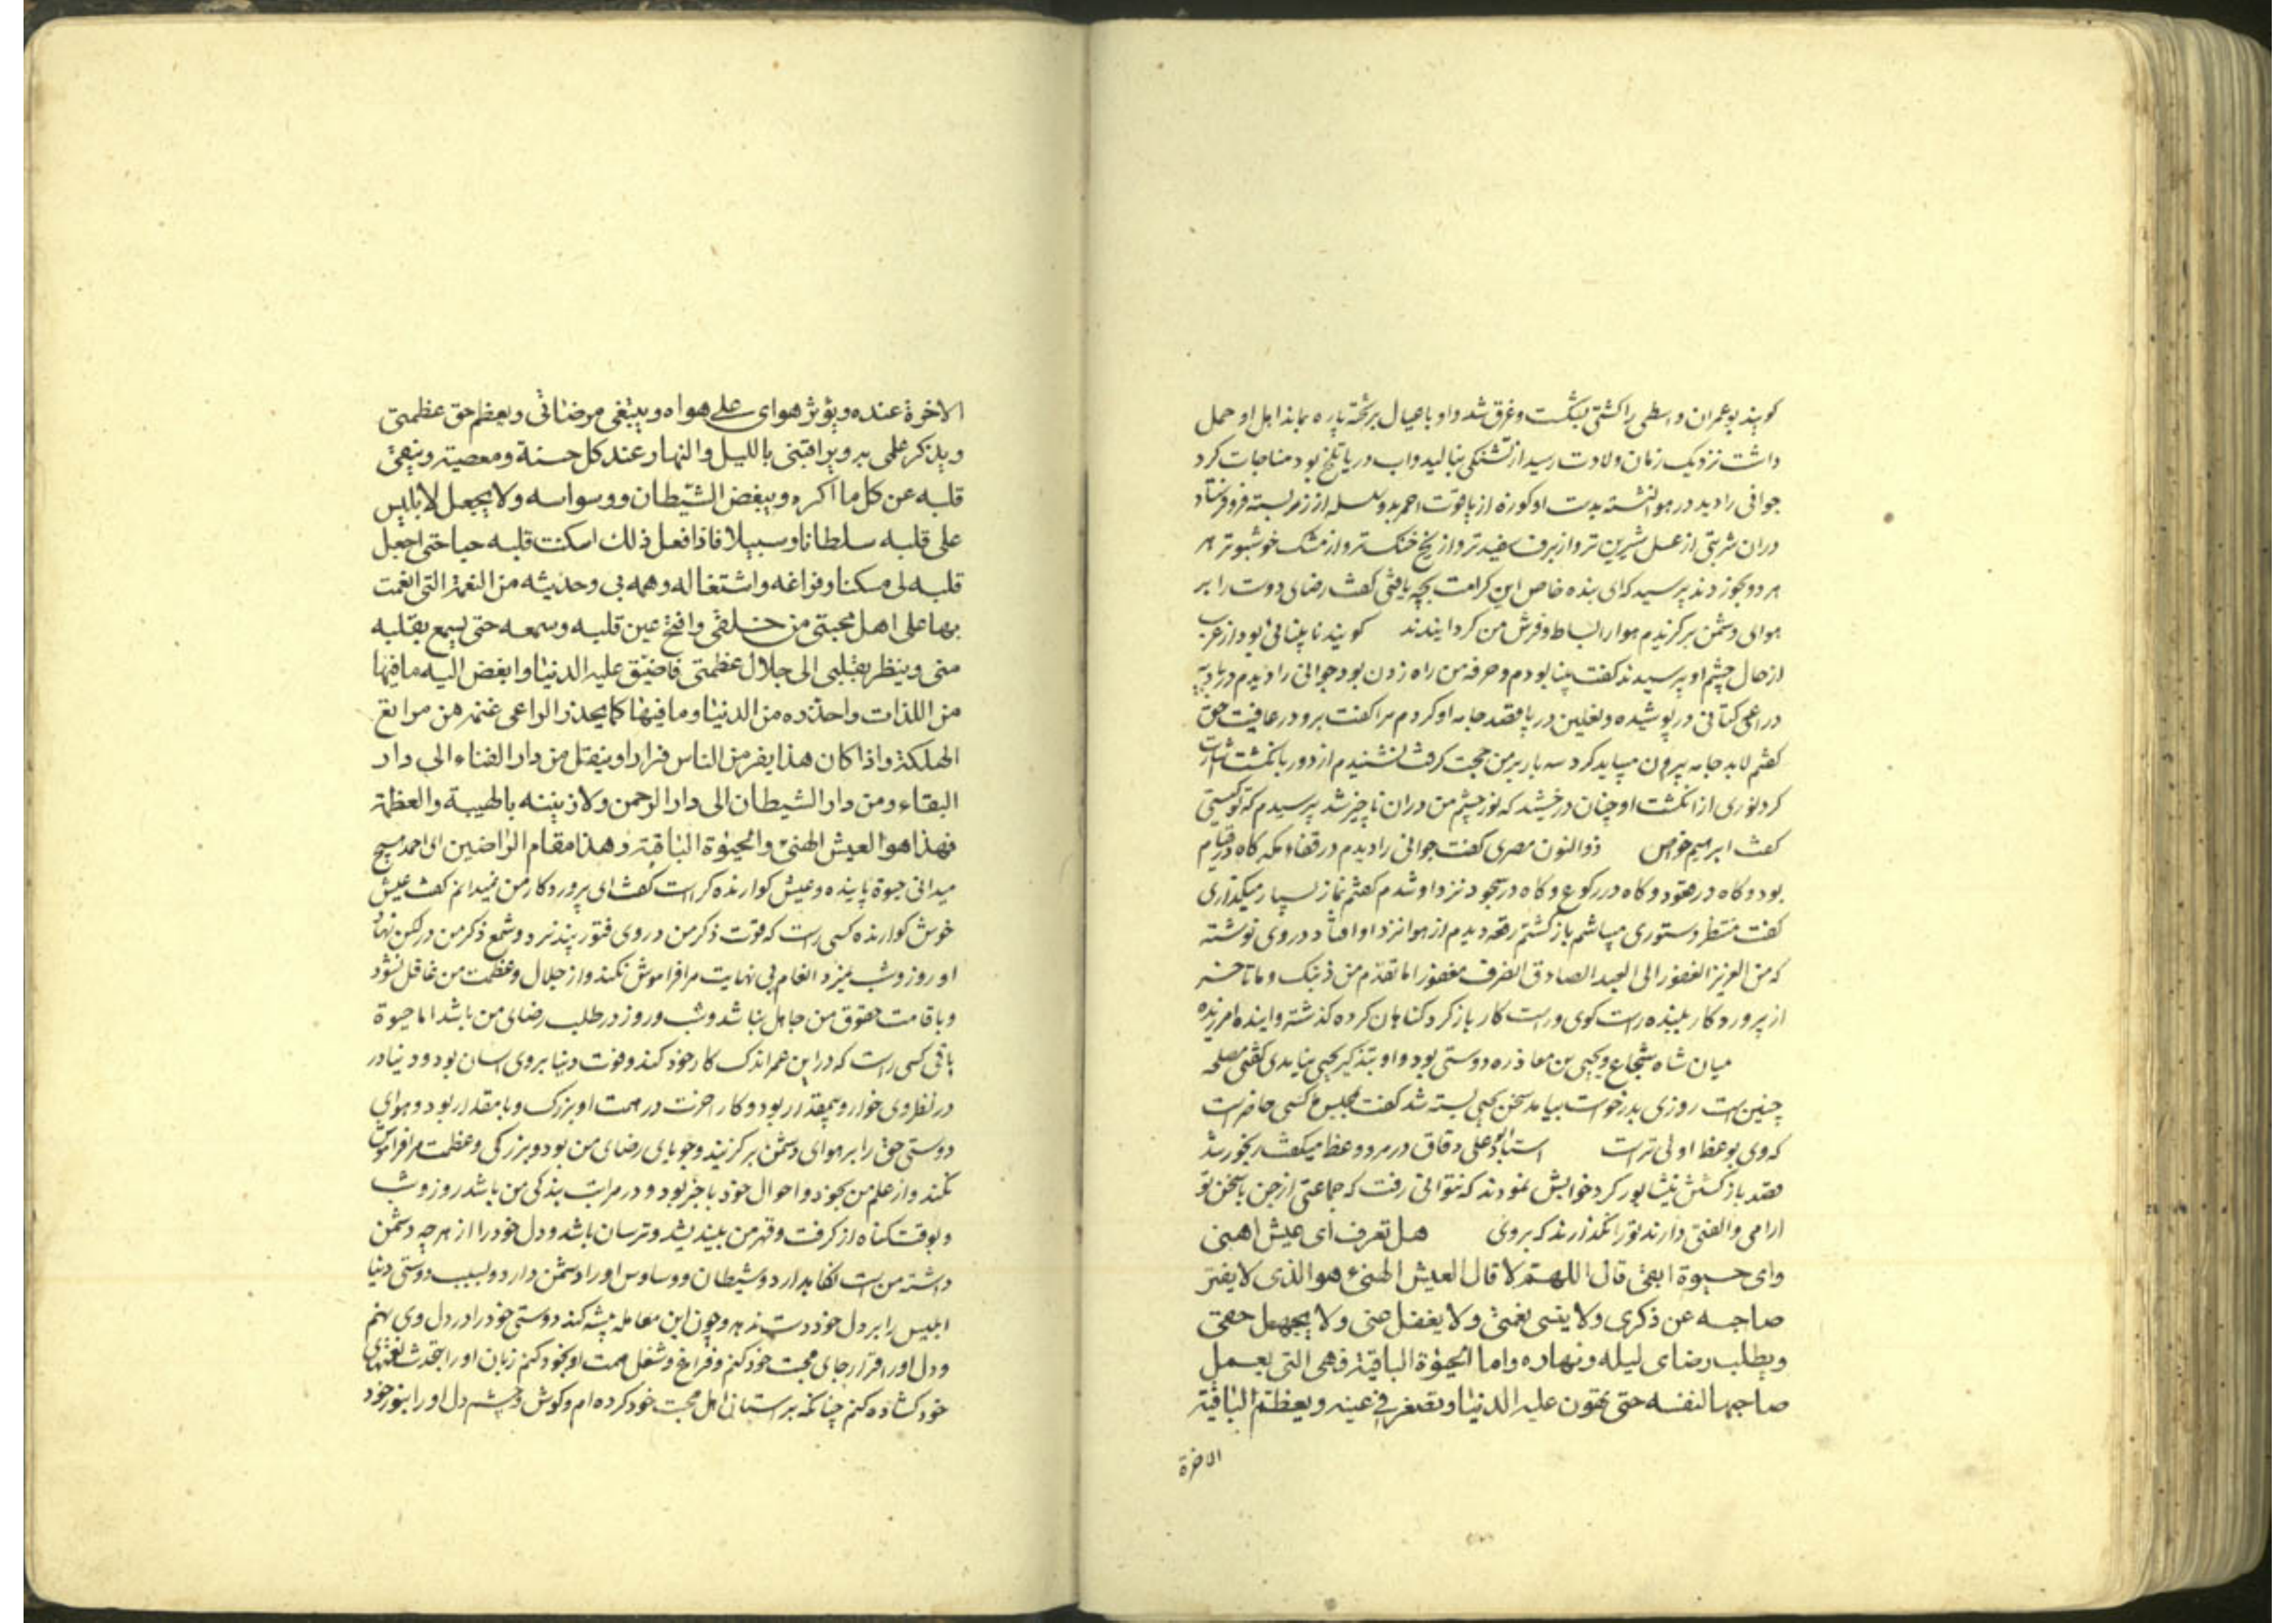 کویند بوعمران واسطی را کشتی بشکست و غرق شد و او با عیال بر تخته پاره بماند اهل او حمل
داشت نزدیک زمان ولادت رسید از تشنکی بنالید و اب دریا تلخ بود مناجات کرد
جوانی را دید در هوا نشسته بدست او کوزه از یاقوت احمر بدو سلسله از زر بسته فرو فرستاد
دران شربتی از عسل شیرین تر و از برف سفیدتر و از یخ خنک تر و از مشک خوشبوتر هر
هر دو بخوردند پرسید که ای بنده خاص این کرامت بچه یافتی کفت رضای دوست را بر
هوای دشمن برکزیدم هوا را بساط و فرش من کردایندند کویند نابینائی بود از عرب
از حال چشم او پرسیدند کفت بینا بودم و حرفه من راه زدن بود جوانی را دیدم در بادیه
دراعی کتانی در پوشیده و نعلین در پا قصد جامه او کردم مرا کفت برو در عافیت حق
کفتم لابد جامه بیرون میباید کرد سه بار بر من حجت کرفت نشنیدم از دور بانکشت اشارت
کرد نوری از انکشت او چنان درخشید که نور چشم من دران ناچیز شد پرسیدم که تو کیستی
کفت ابرهیم خواص ذوالنون مصری کفت جوانی را دیدم در قضاء مکه کاه در قیام
بود و کاه در قعود و کاه در رکوع و کاه در سجود نزد او شدم کفتم نماز بسیار میکذاری
کفت منتظر دستوری میباشم بازکشتم رقعه دیدم از هوا نزد او افتاد در وی نوشته
که من العزیز الغفور الی العبد الصادق انصرف مغفورا ما تقدم من ذنبک و ما تاخر
از پروردکار ببنده راست کوی و راست کار بازکرد کناهان کرده کذشته و اینده امرزیده
میان شاه شجاع و یحیی بن معاذ ره دوستی بود و او بتذکیر یحیی نیامدی کفتی مصلحه
چنین است روزی بدرخواست بیامد سخن یحیی بسته شد کفت مجلس کسی حاضر است
که وی بوعظ اولی تر است استاد ابو علی دقاق در مرو وعظ میکفت رنجور شد
قصد بازکشتن نیشابور کرد خوابش نمودند که نتوانی رفت که جماعتی از جن با سخن تو
ارامی و الفتی دارند تو را نکذارند که بروی هل تعرف ای عیش اهنی
وای حیوة ابقی قال اللهم لا قال العیش الهنئ هو الذی لا یفتر
صاحبه عن ذکری ولا ینسی نعمتی ولا یغفل عنی ولا یجهل حقی
ویطلب رضای لیله ونهاره واما الحیوة الباقیة فهی التی یعمل
صاحبها لنفسه حتی تهون علیه الدنیا وتصغر فی عینه ویعظم الباقیة
الاخرة
الاخرة عنده ویؤثر هوای علی هواه ویبتغی مرضاتی ویعظم حق عظمتی
ویذکر علمی به ویراقبنی باللیل والنهار عند کل حسنة ومعصیة وینقی
قلبه عن کل ما اکره ویبغض الشیطان ووسواسه ولا یجعل لابلیس
علی قلبه سلطانا وسبیلا فاذا فعل ذلک اسکنت قلبه حبا حتی اجعل
قلبه لی مسکنا وفراغه واشتغاله وهمه بی وحدیثه من النعمة التی انعمت
بها علی اهل محبتی من خلقی وافتح عین قلبه وسمعه حتی یسمع بقلبه
منی وینظر بقلبی الی جلال عظمتی فاضیق علیه الدنیا وابغض الیه مافیها
من اللذات واحذره من الدنیا ومافیها کما یحذر الراعی غنمه من مراتع
الهلکة واذا کان هذا یفر من الناس فرارا وینقل من دار الفناء الی دار
البقاء ومن دار الشیطان الی دار الرحمن ولازیننه بالهیبة والعظمة
فهذا هو العیش الهنئ والحیوة الباقیة وهذا مقام الراضین ای احمد هیچ
میدانی حیوة پاینده و عیش کوارنده کراست کفت ای پروردکار من نمیدانم کفت عیش
خوش کوارنده کسی راست که قوت ذکر من در وی فتور نپذیرد و شمع ذکر من در لکن نهاد
او روز و شب نمیرد انعام بی نهایت مرا فراموش نکند و از جلال و عظمت من غافل نشود
و باقامت حقوق من جاهل نباشد و شب و روز در طلب رضای من باشد اما حیوة
باقی کسی راست که در این عمر اندک کار خود کند و فوت دنیا بر وی اسان بود و دنیا در
در نظر وی خوار و بیمقدار بود و کار اخرت در همت او بزرک و با مقدار بود و هوای
دوستی حق را بر هوای دشمن برکزیند و جویای رضای من بود و بزرکی و عظمت مرا فراموش
نکند و از علم من بخود و احوال خود با خبر بود و در مراتب بندکی من باشد روز و شب
و بوقت کناه از کرفت و قهر من بیندیشد و ترسان باشد و دل خود را از هرچه دشمن
داشته من است نکاه بدارد و شیطان و وساوس او را دشمن دارد و بسبب دوستی دنیا
ابلیس را بر دل خود دست ندهد و چون این معامله پیشه کند دوستی خود را در دل وی نهم
و دل او را قرار جای محبت خود کنم و فراغ و شغل و همت او بخود کنم زبان او را بتحدث نعمتهای
خود کشاده کنم چنانکه بر استانی اهل محبت خود کرده ام و کوش و چشم دل او را بنور خود